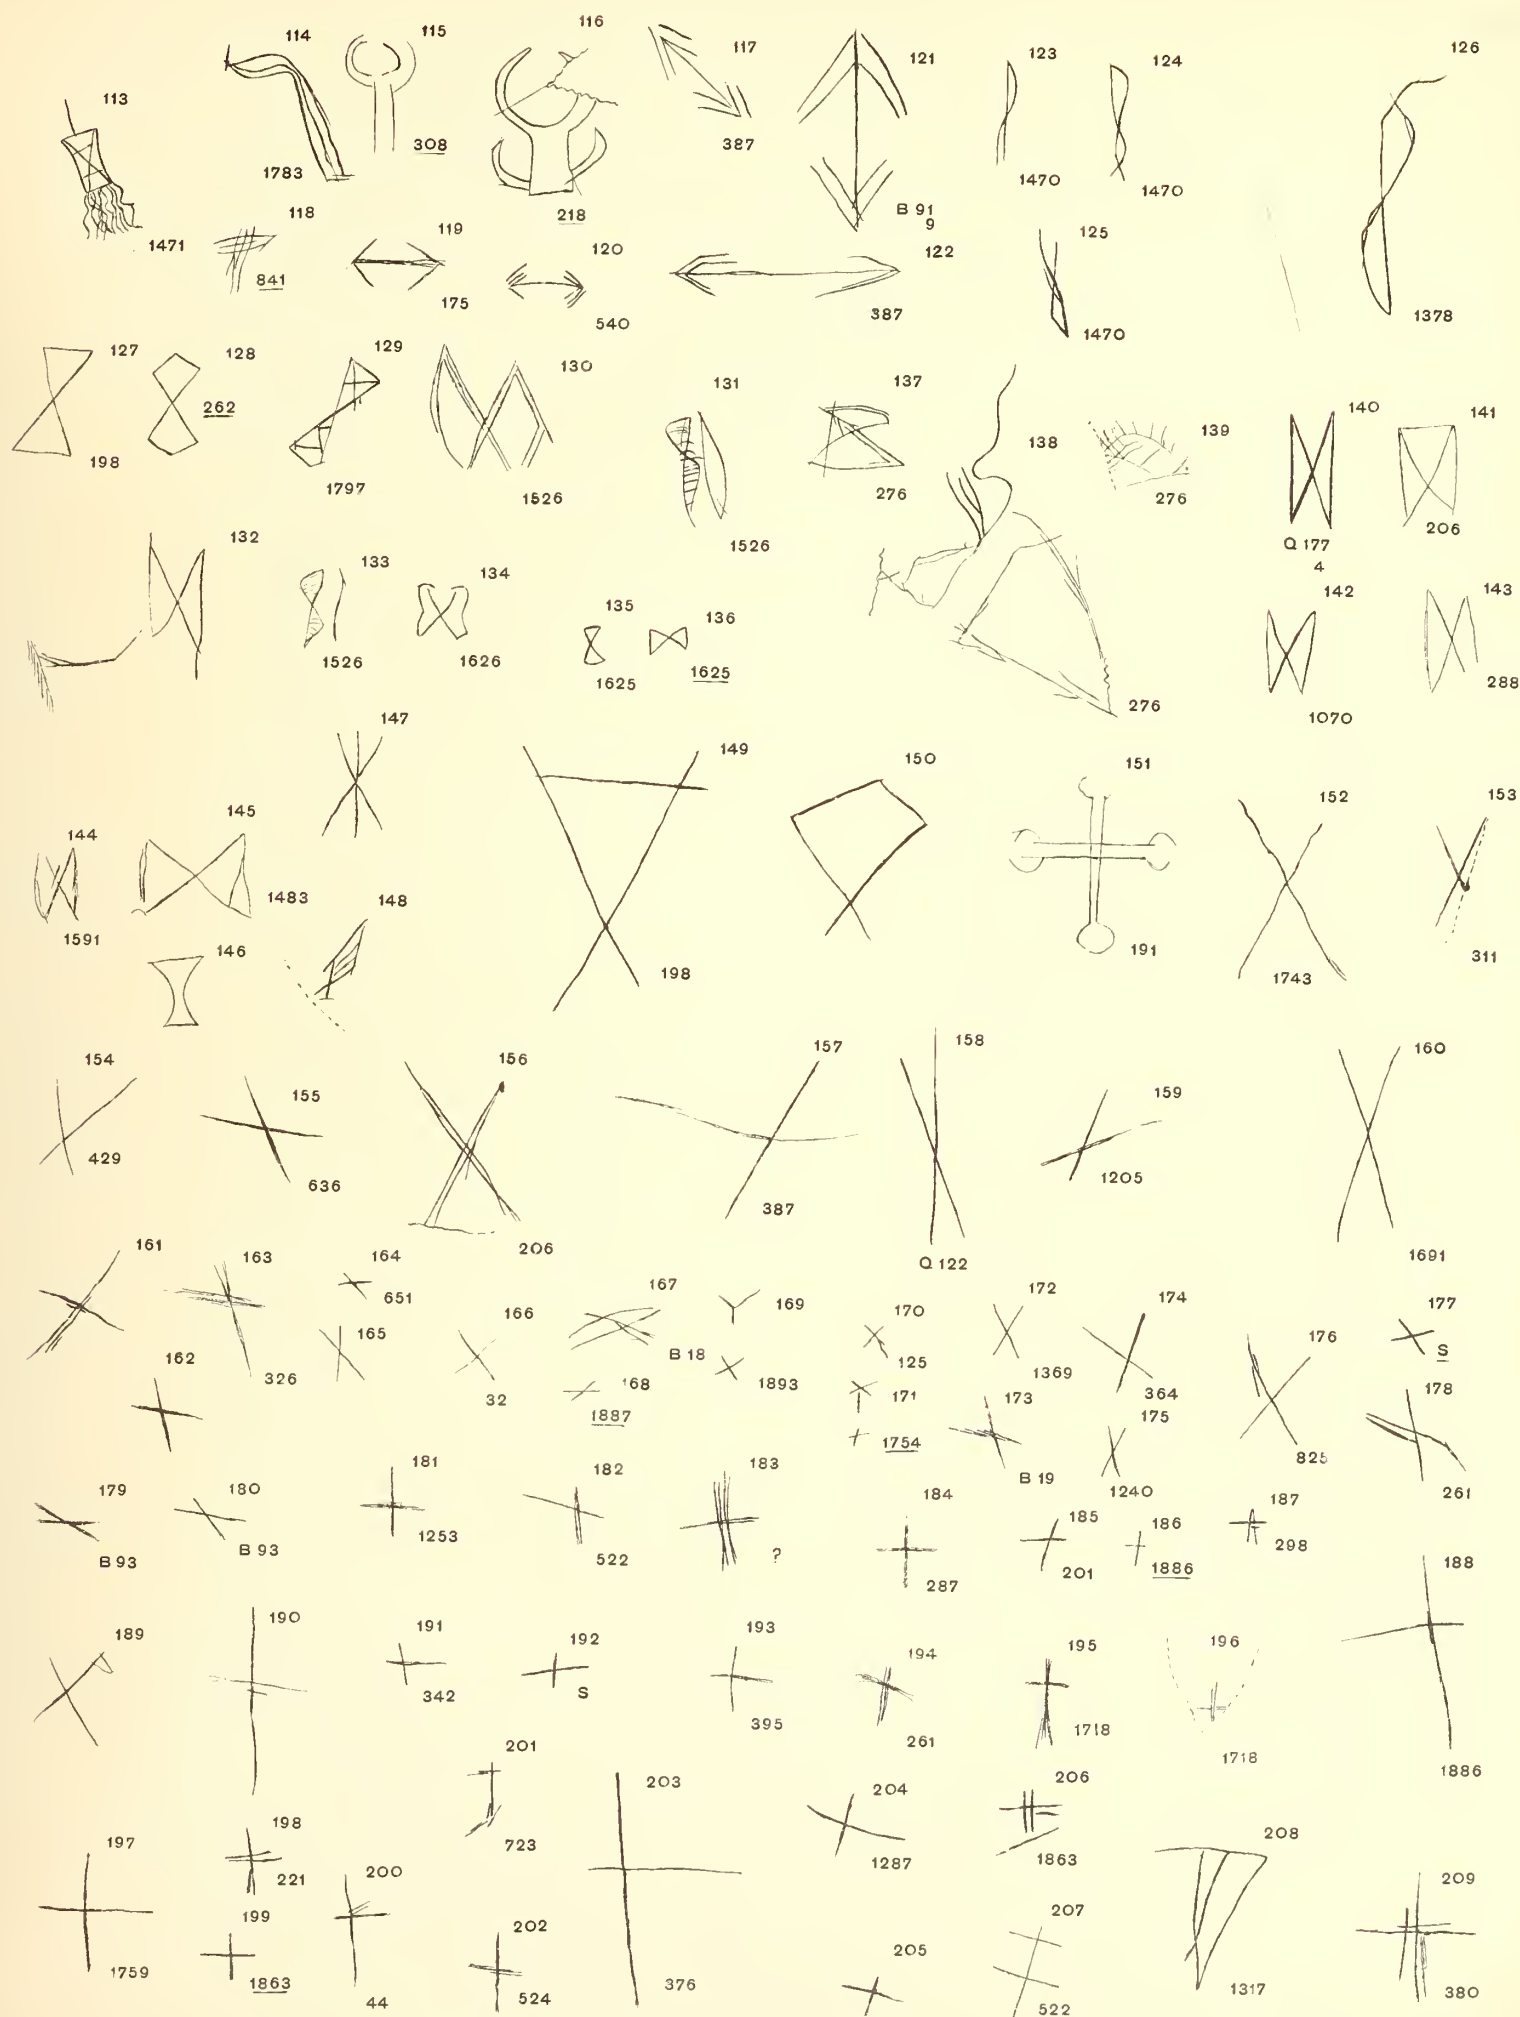 113
1471
114
1783
115
308
116
218
117
387
121
B 91
9
123
1470
124
1470
126
1378
118
841
119
175
120
540
122
387
125
1470
127
198
128
262
129
1797
130
1526
131
1526
137
276
138
276
139
276
140
Q 177
4
141
206
132
133
1526
134
1626
135
1625
136
1625
142
1070
143
288
147
149
198
150
151
191
152
1743
153
311
144
1591
145
1483
146
148
154
429
155
636
156
206
157
387
158
Q 122
159
1205
160
1691
161
163
326
164
651
165
166
32
167
B 18
168
1887
169
1893
170
125
171
1754
172
1369
173
B 19
174
364
175
1240
176
825
177
S
178
261
162
179
B 93
180
B 93
181
1253
182
522
183
?
184
287
185
201
186
1886
187
298
188
1886
189
190
191
342
192
S
193
395
194
261
195
1718
196
1718
197
1759
198
221
199
1863
200
44
201
723
202
524
203
376
204
1287
205
206
1863
207
522
208
1317
209
380